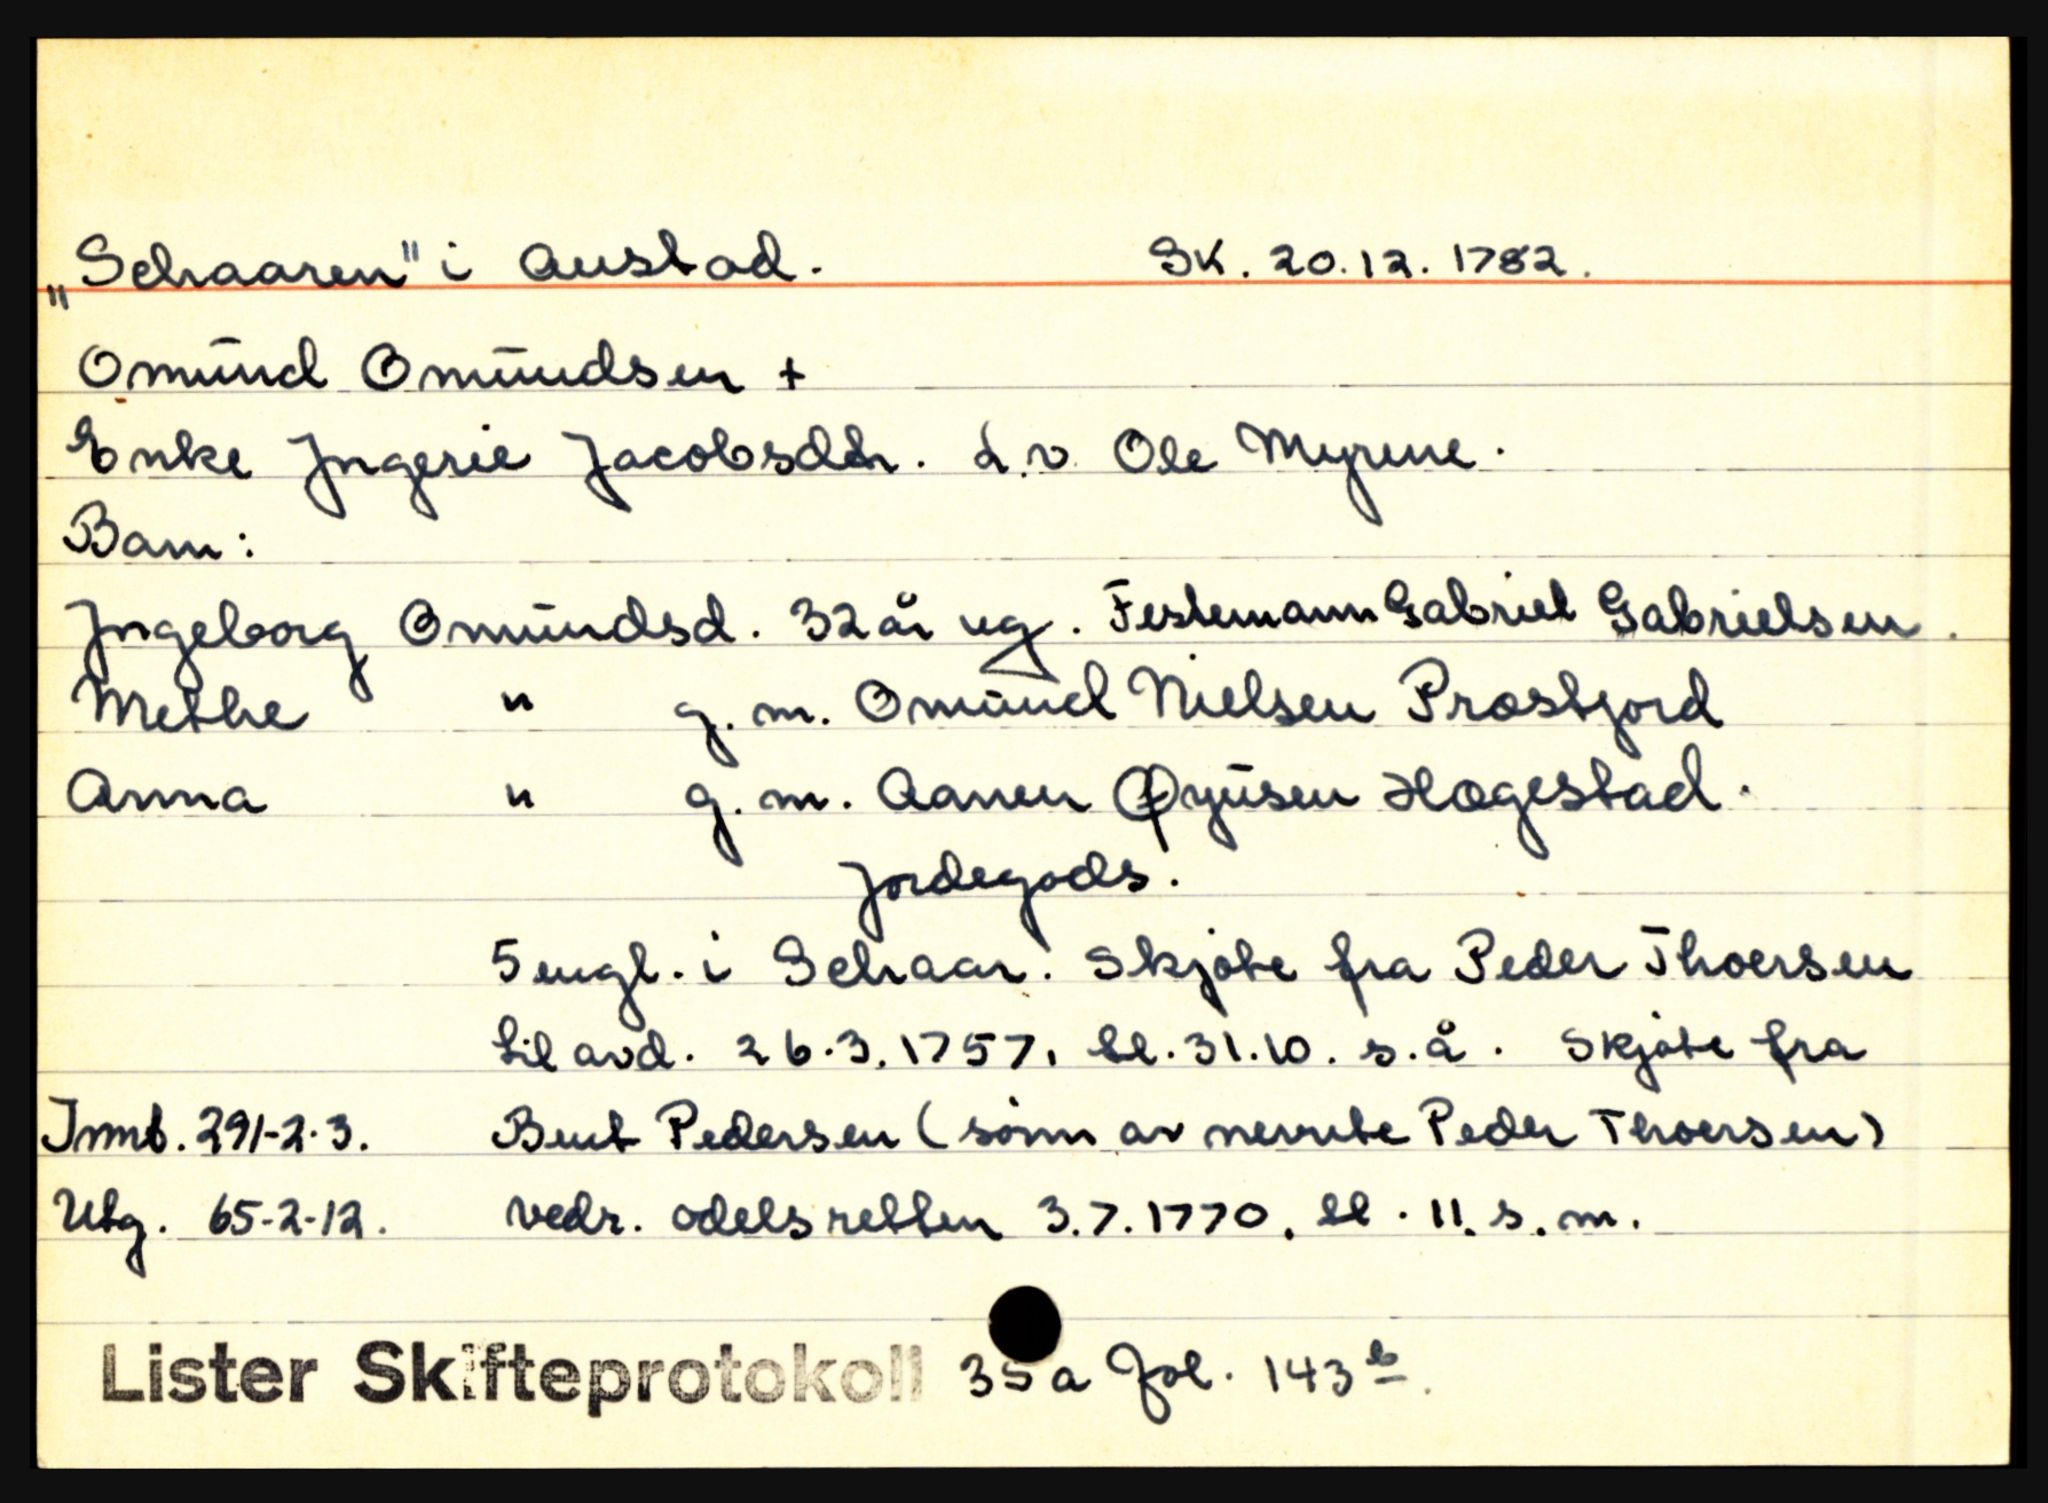 „Schaaren" i Austad. SK. 20.12.1782.
Omund Omundsen +
Enke Jngerie Jacobsdtr. L.v. Ole Myrene.
Barn:
Jngeborg Omundsd. 32 år ug. Festemann Gabriel Gabrielsen.
Methe " g. m. Omund Nielsen Præstjord
Anna " g. m. Aanen Øyusen Hægestad.
Jordegods.
5 engl. i Schaar. Skjøte fra Peder Thoersen
til avd. 26.3.1757, tl. 31.10. s.å. Skjøte fra
Innt. 291-2-3. Bent Pedersen (sønn av nevnte Peder Thoersen)
Utg. 65-2-12. vedr. odelsretten 3.7.1770, tl. 11. s. m.
Lister Skifteprotokoll 35a Fol. 143 b.